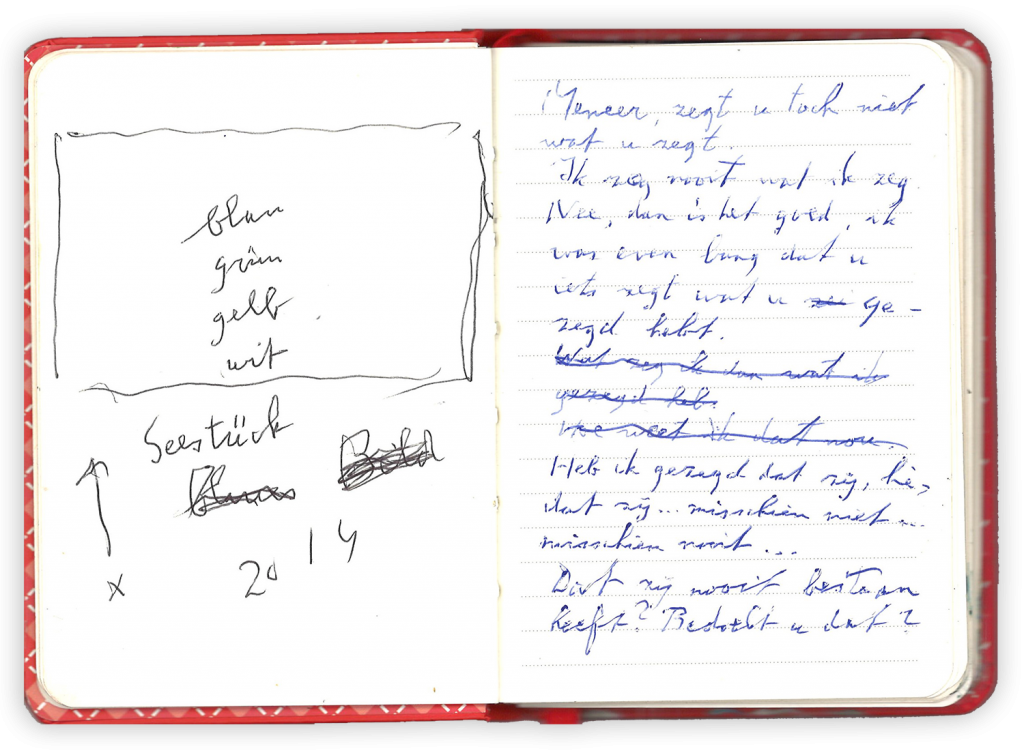 blau
grün
gelb
wit
Seestück
Bild
x
20 14
Meneer, zegt u toch niet
wat u zegt.
Ik zeg nooit wat ik zeg
Nee, dan is het goed, ik
was even bang dat u
iets zegt wat u ge-
zegd hebt.
Wat zeg ik dan wat ik
gezegd heb.
Hoe weet ik dat nou.
Heb ik gezegd dat zij, hè,
dat zij... misschien niet...
misschien nooit...
Dat zij nooit bestaan
heeft? Bedoelt u dat?